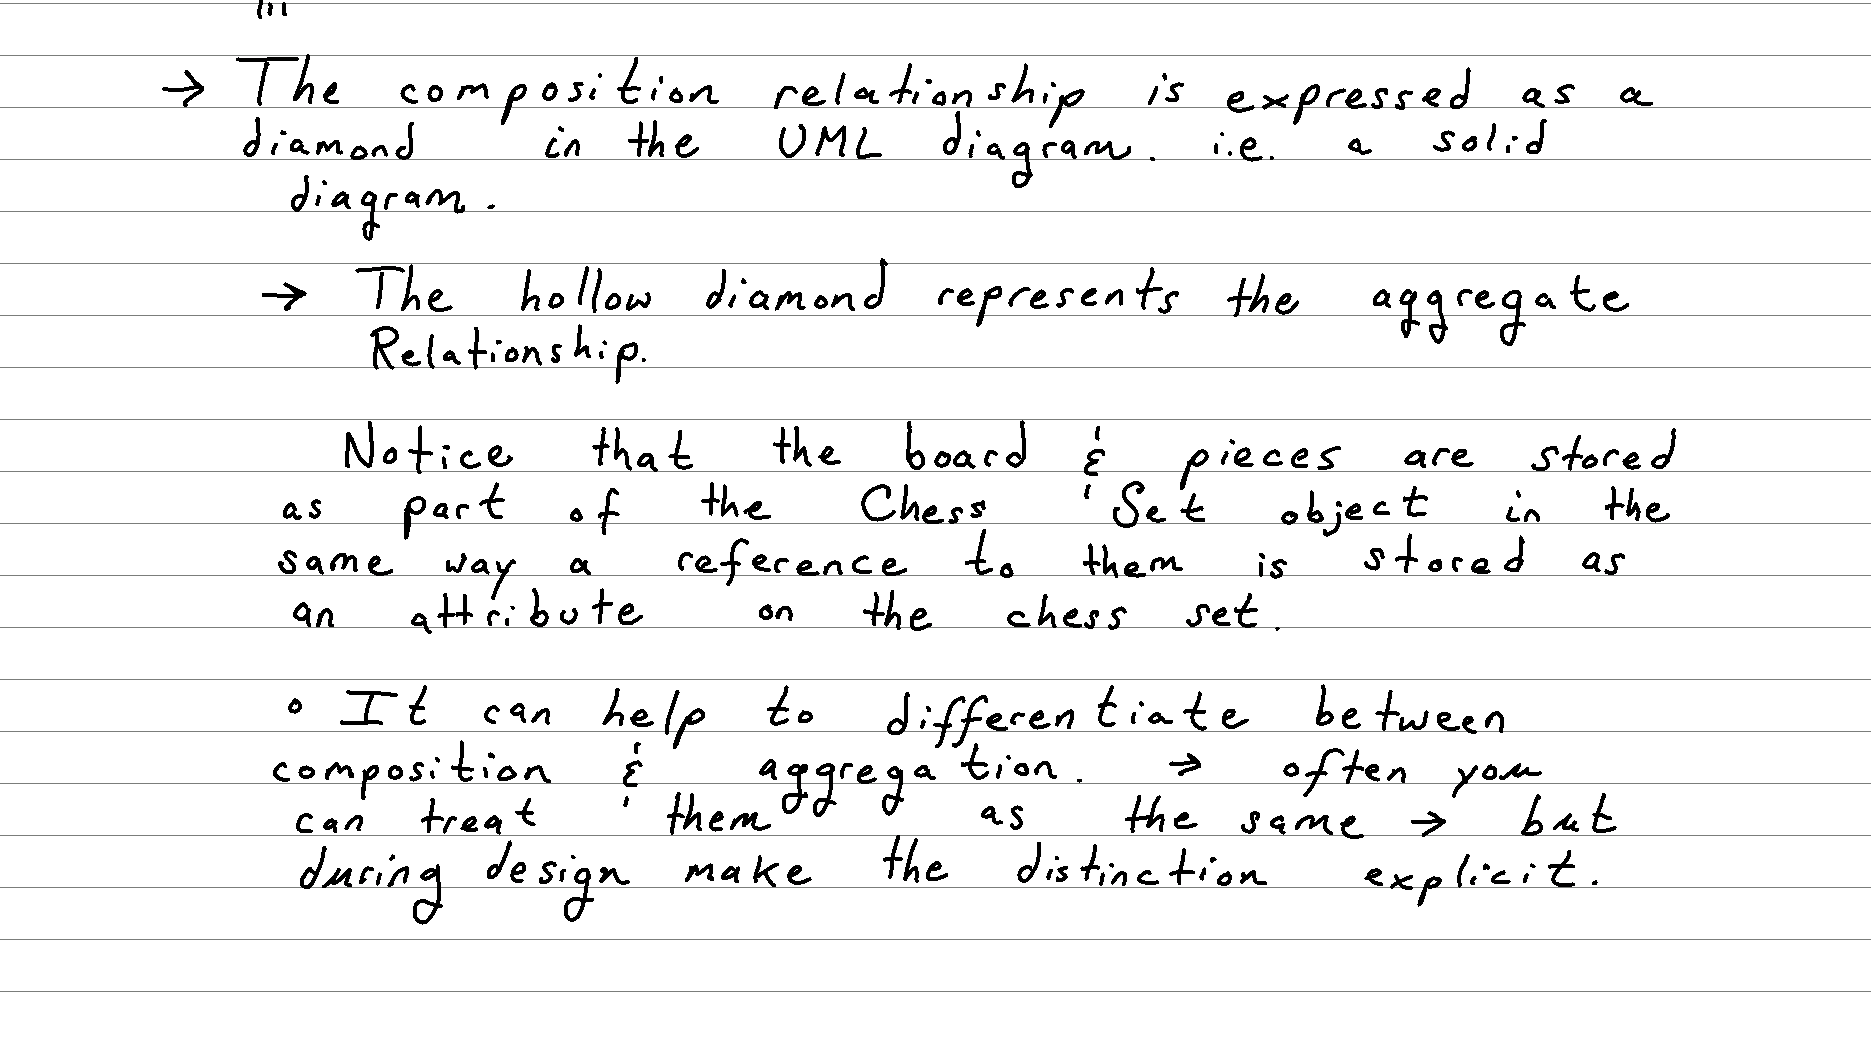 → The composition relationship is expressed as a
diamond in the UML diagram. i.e. a solid
diagram.
→ The hollow diamond represents the aggregate
Relationship.
Notice that the board & pieces are stored
as part of the Chess Set object in the
same way a reference to them is stored as
an attribute on the chess set.
◦ It can help to differentiate between
composition & aggregation. → often you
can treat them as the same → but
during design make the distinction explicit.